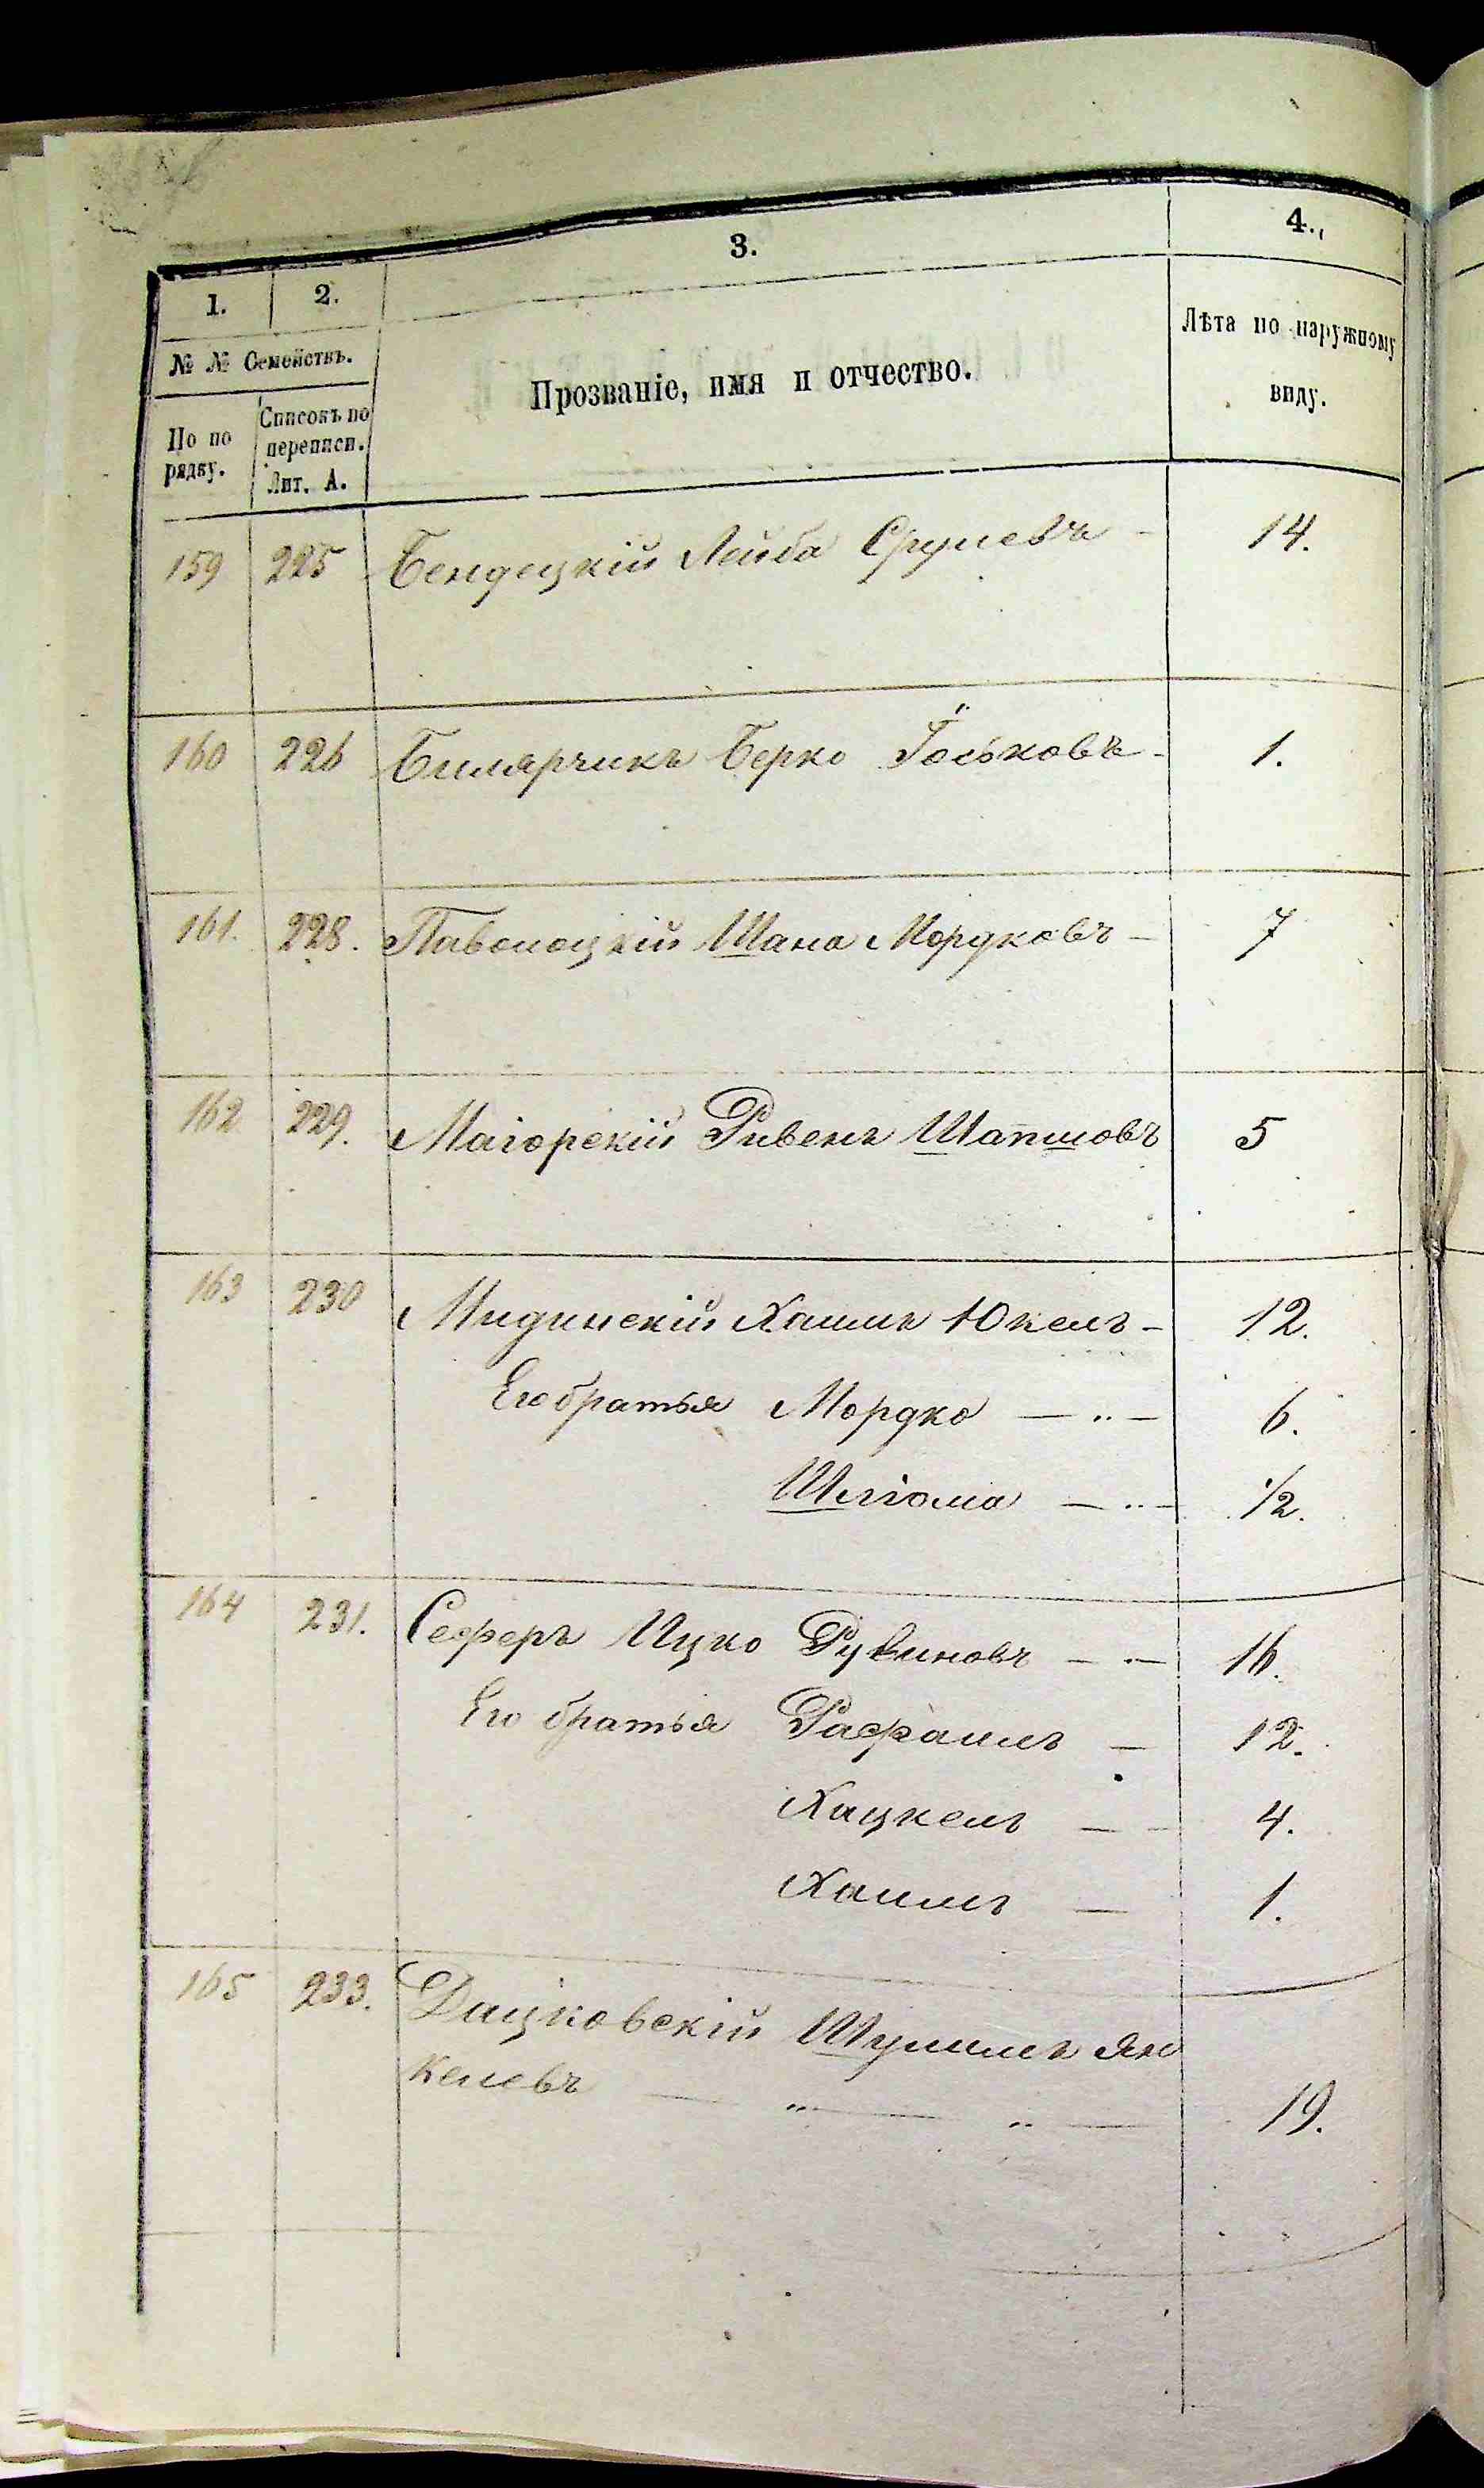 1. 2. 3. 4.
№ № Семействъ.
По по рядку.
Списокъ по переписи. Лит. А.
Прозваніе, имя и отчество.
Лѣта по наружному
виду.
159 225 Бендецкій Лейба Срулевъ - 14.
160 226 Билярчикъ Берко Іоськовъ - 1.
161. 228. Паволоцкій Шана Мордковъ - 7
162 229. Магорскій Ривенъ Шапшовъ 5
163 230 Мидинскій Хаимъ Юкелъ - 12.
Его братья Мордко — „ — 6.
Шліома — „ — 1/2.
164 231. Сеферъ Ицко Рувиновъ — „ — 16.
Его братья Рафаилъ — 12.
Хацкель — 4.
Хаимъ — 1.
165 233. Дацковскій Шулимъ Ян
келевъ — „ — „ — 19.